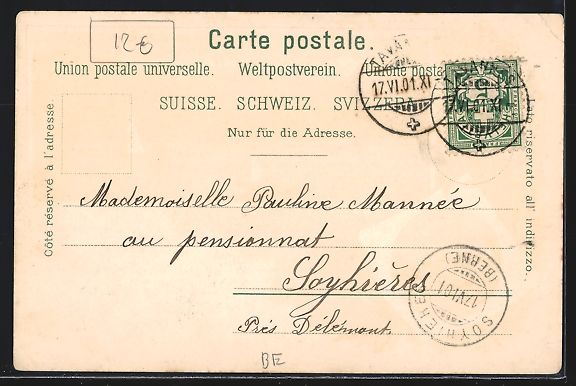 12€
Carte postale.
Union postale universelle. Weltpostverein. Unione posta
SUISSE. SCHWEIZ. SVIZZERA.
Nur für die Adresse.
Côté réservé à l'adresse.
Lato riservato all' indirizzo.
TAVA
17.VI.01.XI
17.VI.01.XI
5
Mademoiselle Pauline Mannée
au pensionnat
Soyhières
Près Délémont
SOYHIERES
(BERNE)
17.VI.01
BE